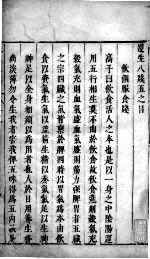 遵生八牋五之目
飲饌服食牋
高子曰飲食活人之本也是以一身之中陰陽運
用五行相生莫不由於飲食故飲食進則穀氣充
穀氣充則血氣盛血氣盛則筋力強脾胃者五臟
之宗四臟之氣皆稟於脾四時以胃氣為本由飲
食以資氣生氣以益精生精以養氣氣足以生神
神足以全身相須以為用者也人於日用養生務
尚淡薄勿令生我者害我俾五味得為五內賊